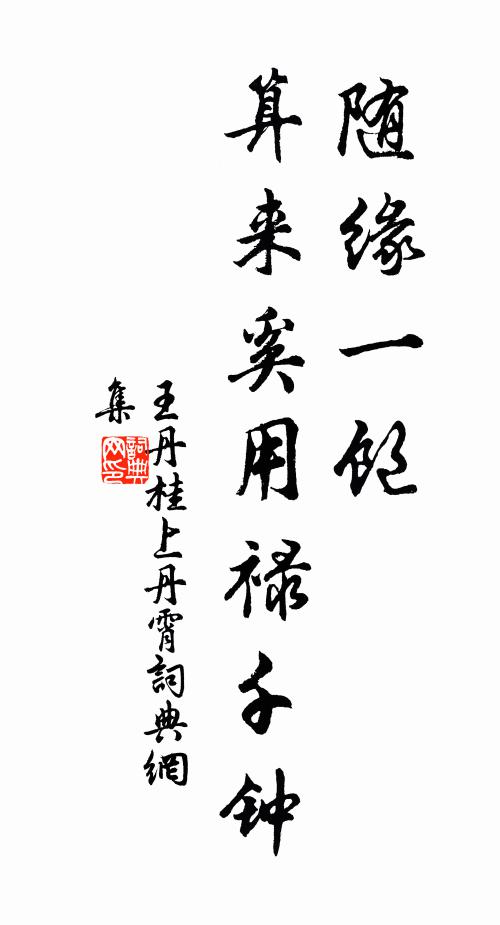 随缘一饱
算来奚用禄千钟
王丹桂上丹霄詞典網
集
詞典网印